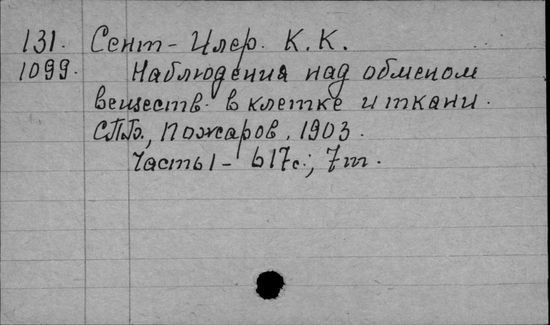 131. Сент-Илер. К. К.
1099. Наблюдения над обменом
веществ в клетке и ткани.
С.П.Б., Пожаров, 1903.
Часть I - 617с.; 7т.